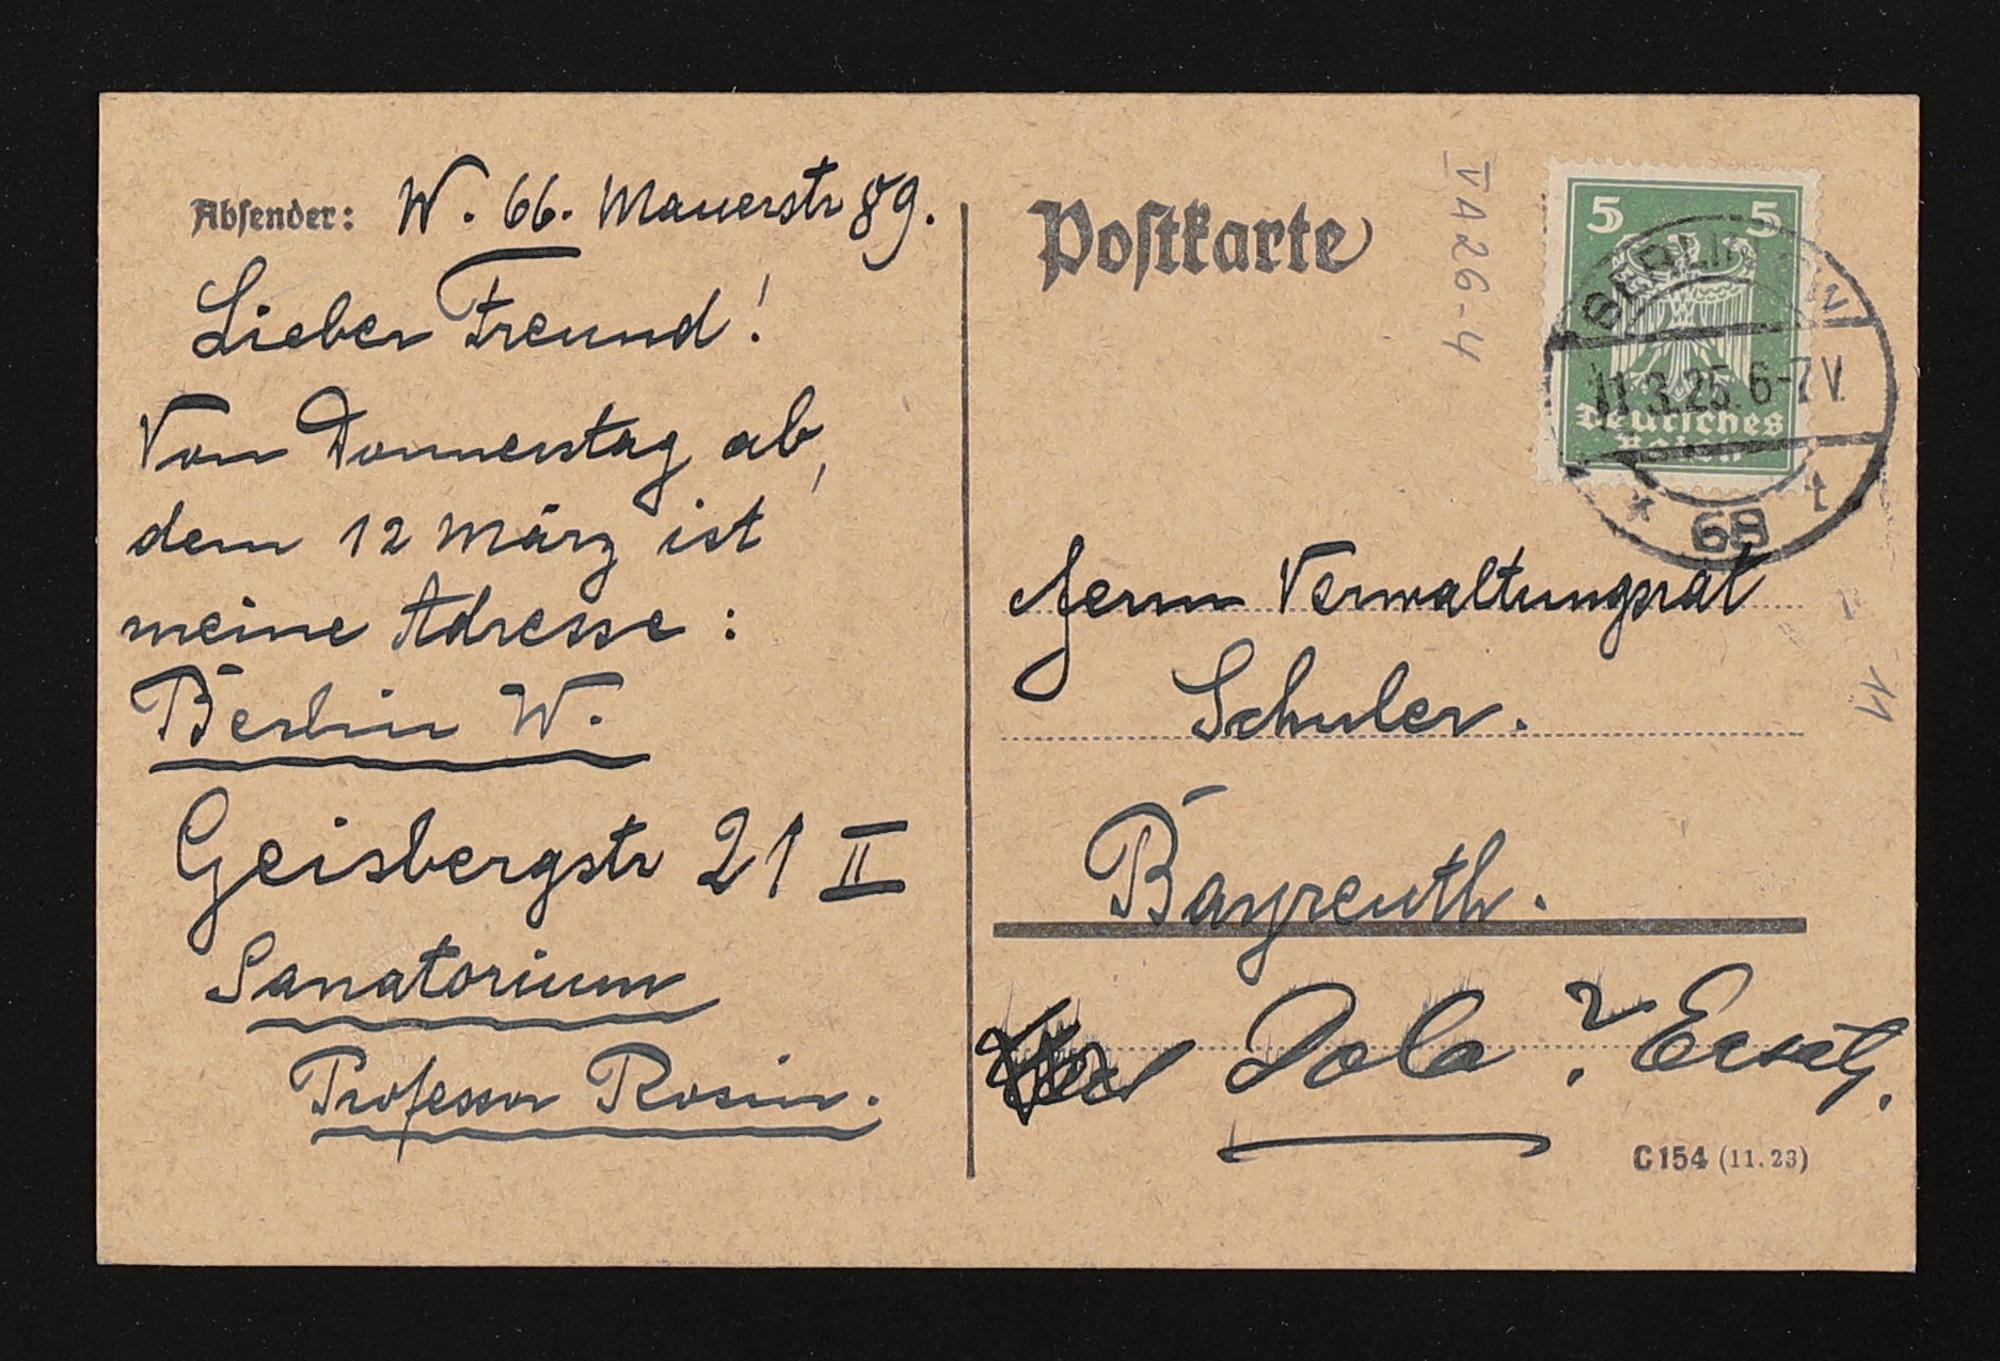 Absender: W. 66. Mauerstr 89.
Lieber Freund!
Von Donnerstag ab,
dem 12 März ist
meine Adresse:
Berlin W.
Geisbergstr 21 II
Sanatorium
Professor Rosin.
Postkarte
V A 26-4
5 5
Deutsches
Reich
BERLIN
11.3.25. 6-7 V.
* 68 t
Herrn Verwaltungsrat
Schuler.
Bayreuth.
Dola. ? Ersatz.
11
C 154 (11.23)